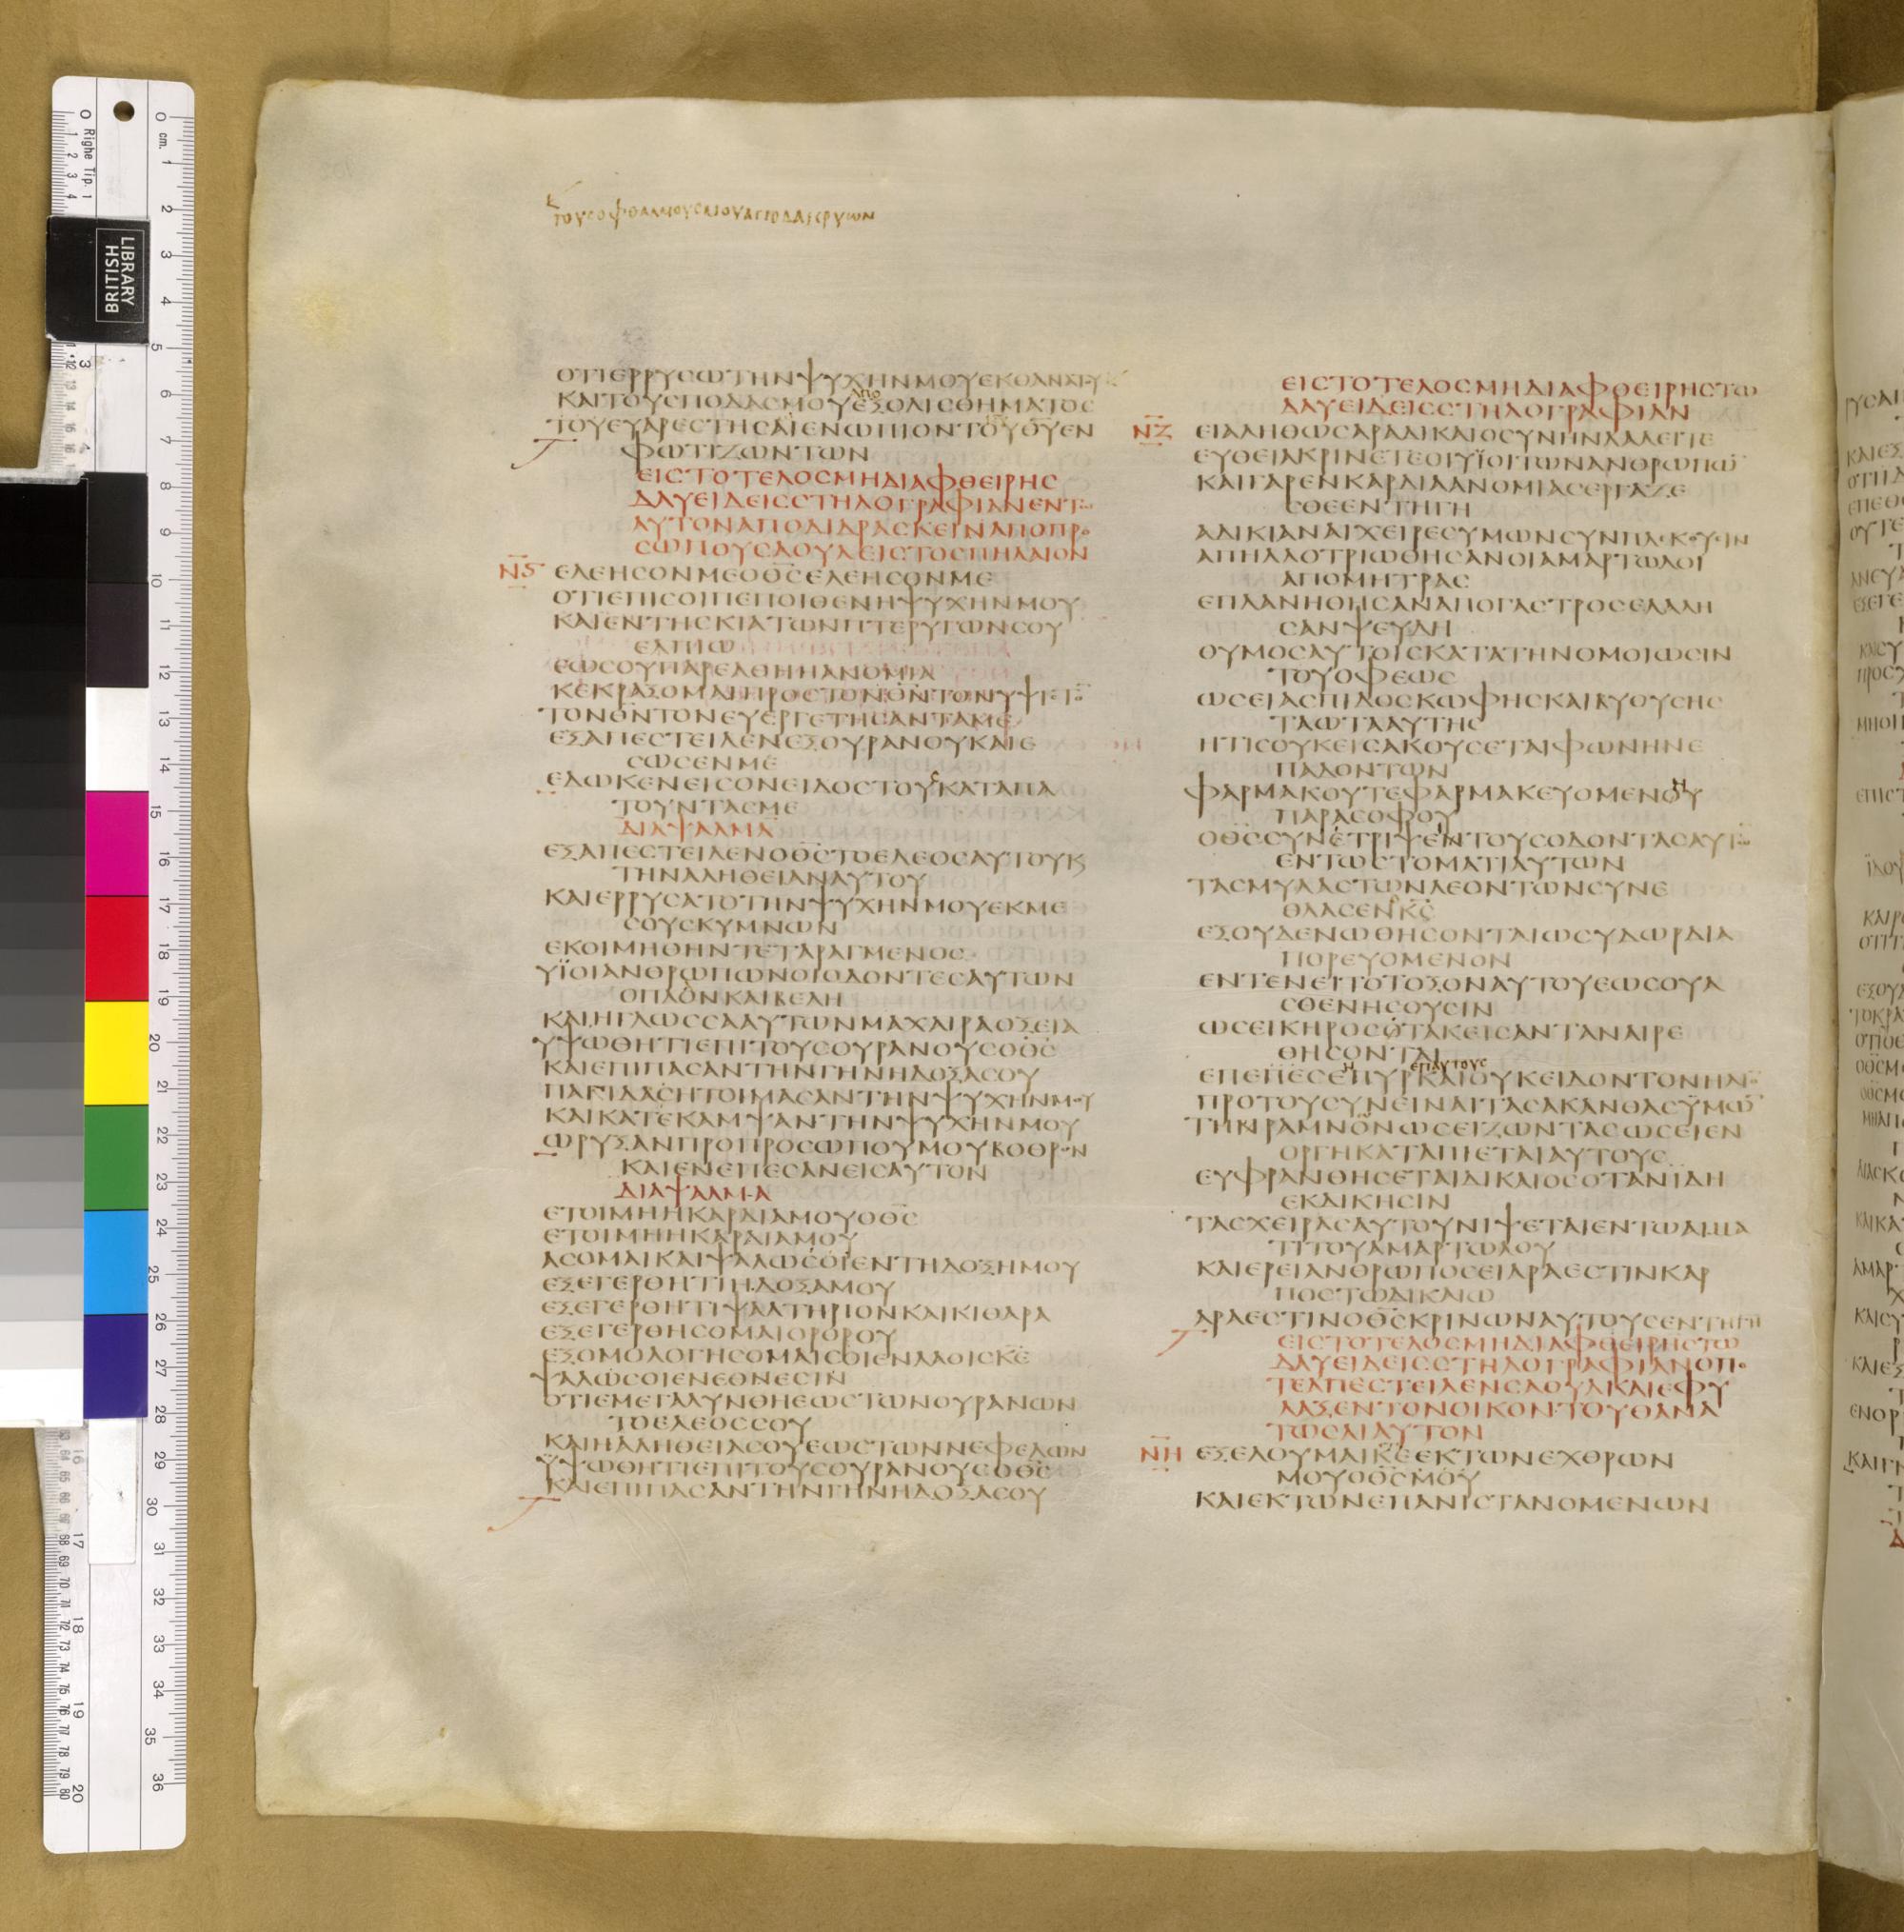 ΤΟΥСΟΦΘΑΛΜΟΥСΜΟΥΑΠΟΔΑΚΡΥΩΝ
ΟΤΙΕΡΡΥСΩΤΗΝΨΥΧΗΝΜΟΥΕΚΘΑΝΑΤΟΥ
ΚΑΙΤΟΥСΠΟΔΑСΜΟΥΕΞΟΛΙСΘΗΜΑΤΟС
ΑΠΟ
ΤΟΥΕΥΑΡΕСΤΗСΑΙΕΝΩΠΙΟΝΤΟΥΘΥΕΝ
ΦΩΤΙΖΩΝΤΩΝ
ΕΙСΤΟΤΕΛΟСΜΗΔΙΑΦΘΕΙΡΗС
ΔΑΥΕΙΔΕΙССΤΗΛΟΓΡΑΦΙΑΝΕΝΤΩ
ΑΥΤΟΝΑΠΟΔΙΔΡΑСΚΕΙΝΑΠΟΠΡΟ
СΩΠΟΥСΑΟΥΛΕΙСΤΟСΠΗΛΑΙΟΝ
ΝϚ ΕΛΕΗСΟΝΜΕΟΘСΕΛΕΗСΟΝΜΕ
ΟΤΙΕΠΙСΟΙΠΕΠΟΙΘΕΝΗΨΥΧΗΝΜΟΥ
ΚΑΙΕΝΤΗСΚΙΑΤΩΝΠΤΕΡΥΓΩΝСΟΥ
ΕΛΠΙΩ
ΕΩСΟΥΠΑΡΕΛΘΗΗΑΝΟΜΙΑ
ΚΕΚΡΑΞΟΜΑΙΠΡΟСΤΟΝΘΝΤΟΝΥΨΙСΤΟ
ΤΟΝΘΝΤΟΝΕΥΕΡΓΕΤΗСΑΝΤΑΜΕ
ΕΞΑΠΕСΤΕΙΛΕΝΕΞΟΥΡΑΝΟΥΚΑΙΕ
СΩСΕΝΜΕ
ΕΔΩΚΕΝΕΙСΟΝΕΙΔΟСΤΟΥСΚΑΤΑΠΑ
ΤΟΥΝΤΑСΜΕ
ΔΙΑΨΑΛΜΑ
ΕΞΑΠΕСΤΕΙΛΕΝΟΘСΤΟΕΛΕΟСΑΥΤΟΥΚ
ΤΗΝΑΛΗΘΕΙΑΝΑΥΤΟΥ
ΚΑΙΕΡΡΥСΑΤΟΤΗΝΨΥΧΗΝΜΟΥΕΚΜΕ
СΟΥСΚΥΜΝΩΝ
ΕΚΟΙΜΗΘΗΝΤΕΤΑΡΑΓΜΕΝΟС
ΥΪΟΙΑΝΘΡΩΠΩΝΟΙΟΔΟΝΤΕСΑΥΤΩΝ
ΟΠΛΟΝΚΑΙΒΕΛΗ
ΚΑΙΗΓΛΩССΑΑΥΤΩΝΜΑΧΑΙΡΑΟΞΕΙΑ
ΥΨΩΘΗΤΙΕΠΙΤΟΥСΟΥΡΑΝΟΥСΟΘС
ΚΑΙΕΠΙΠΑСΑΝΤΗΝΓΗΝΗΔΟΞΑСΟΥ
ΠΑΓΙΔΑСΗΤΟΙΜΑСΑΝΤΗΝΨΥΧΗΝΜΟΥ
ΚΑΙΚΑΤΕΚΑΜΨΑΝΤΗΝΨΥΧΗΝΜΟΥ
ΩΡΥΞΑΝΠΡΟΠΡΟСΩΠΟΥΜΟΥΒΟΘΡΟΝ
ΚΑΙΕΝΕΠΕСΑΝΕΙСΑΥΤΟΝ
ΔΙΑΨΑΛΜΑ
ΕΤΟΙΜΗΗΚΑΡΔΙΑΜΟΥΟΘС
ΕΤΟΙΜΗΗΚΑΡΔΙΑΜΟΥ
ΑСΟΜΑΙΚΑΙΨΑΛΩСΟΙΕΝΤΗΔΟΞΗΜΟΥ
ΕΞΕΓΕΡΘΗΤΙΗΔΟΞΑΜΟΥ
ΕΞΕΓΕΡΘΗΤΙΨΑΛΤΗΡΙΟΝΚΑΙΚΙΘΑΡΑ
ΕΞΕΓΕΡΘΗСΟΜΑΙΟΡΘΡΟΥ
ΕΞΟΜΟΛΟΓΗСΟΜΑΙСΟΙΕΝΛΑΟΙСΚΕ
ΨΑΛΩСΟΙΕΝΕΘΝΕСΙΝ
ΟΤΙΕΜΕΓΑΛΥΝΘΗΕΩСΤΩΝΟΥΡΑΝΩΝ
ΤΟΕΛΕΟССΟΥ
ΚΑΙΗΑΛΗΘΕΙΑСΟΥΕΩСΤΩΝΝΕΦΕΛΩΝ
ΥΨΩΘΗΤΙΕΠΙΤΟΥСΟΥΡΑΝΟΥСΟΘС
ΚΑΙΕΠΙΠΑСΑΝΤΗΝΓΗΝΗΔΟΞΑСΟΥ
ΕΙСΤΟΤΕΛΟСΜΗΔΙΑΦΘΕΙΡΗСΤΩ
ΔΑΥΕΙΔΕΙССΤΗΛΟΓΡΑΦΙΑΝ
ΝΖ ΕΙΑΛΗΘΩСΑΡΑΔΙΚΑΙΟСΥΝΗΝΛΑΛΕΙΤΕ
ΕΥΘΕΙΑΚΡΙΝΕΤΕΟΙΥΪΟΙΤΩΝΑΝΘΡΩΠΩ
ΚΑΙΓΑΡΕΝΚΑΡΔΙΑΑΝΟΜΙΑСΕΡΓΑΖΕ
СΘΕΕΝΤΗΓΗ
ΑΔΙΚΙΑΝΑΙΧΕΙΡΕСΥΜΩΝСΥΝΠΛΕΚΟΥСΙΝ
ΑΠΗΛΛΟΤΡΙΩΘΗСΑΝΟΙΑΜΑΡΤΩΛΟΙ
ΑΠΟΜΗΤΡΑС
ΕΠΛΑΝΗΘΗСΑΝΑΠΟΓΑСΤΡΟСΕΛΑΛΗ
СΑΝΨΕΥΔΗ
ΘΥΜΟСΑΥΤΟΙСΚΑΤΑΤΗΝΟΜΟΙΩСΙΝ
ΤΟΥΟΦΕΩС
ΩСΕΙΑСΠΙΔΟСΚΩΦΗСΚΑΙΒΥΟΥСΗС
ΤΑΩΤΑΑΥΤΗС
ΗΤΙСΟΥΚΕΙСΑΚΟΥСΕΤΑΙΦΩΝΗΝΕ
ΠΑΔΟΝΤΩΝ
ΦΑΡΜΑΚΟΥΤΕΦΑΡΜΑΚΕΥΟΜΕΝΟΥ
ΠΑΡΑСΟΦΟΥ
ΟΘССΥΝΕΤΡΙΨΕΝΤΟΥСΟΔΟΝΤΑСΑΥΤΩ
ΕΝΤΩСΤΟΜΑΤΙΑΥΤΩΝ
ΤΑСΜΥΛΑСΤΩΝΛΕΟΝΤΩΝСΥΝΕ
ΘΛΑСΕΝΚС
ΕΞΟΥΔΕΝΩΘΗСΟΝΤΑΙΩСΥΔΩΡΔΙΑ
ΠΟΡΕΥΟΜΕΝΟΝ
ΕΝΤΕΝΕΙΤΟΤΟΞΟΝΑΥΤΟΥΕΩСΟΥΑ
СΘΕΝΗСΟΥСΙΝ
ΩСΕΙΚΗΡΟСΟΤΑΚΕΙСΑΝΤΑΝΑΙΡΕ
ΘΗСΟΝΤΑΙ
ΕΠΑΥΤΟΥС
ΕΠΕΠΕСΕΠΥΡΚΑΙΟΥΚΕΙΔΟΝΤΟΝΗΛΙΟ
ΠΡΟΤΟΥСΥΝΕΙΝΑΙΤΑСΑΚΑΝΘΑСΥΜΩ
ΤΗΝΡΑΜΝΟΝΩСΕΙΖΩΝΤΑСΩСΕΙΕΝ
ΟΡΓΗΚΑΤΑΠΙΕΤΑΙΑΥΤΟΥС
ΕΥΦΡΑΝΘΗСΕΤΑΙΔΙΚΑΙΟСΟΤΑΝΪΔΗ
ΕΚΔΙΚΗСΙΝ
ΤΑСΧΕΙΡΑСΑΥΤΟΥΝΙΨΕΤΑΙΕΝΤΩΑΙΜΑ
ΤΙΤΟΥΑΜΑΡΤΩΛΟΥ
ΚΑΙΕΡΕΙΑΝΘΡΩΠΟСΕΙΑΡΑΕСΤΙΝΚΑΡ
ΠΟСΤΩΔΙΚΑΙΩ
ΑΡΑΕСΤΙΝΟΘСΚΡΙΝΩΝΑΥΤΟΥСΕΝΤΗΓΗ
ΕΙСΤΟΤΕΛΟСΜΗΔΙΑΦΘΕΙΡΗСΤΩ
ΔΑΥΕΙΔΕΙССΤΗΛΟΓΡΑΦΙΑΝΟΠΟ
ΤΕΑΠΕСΤΕΙΛΕΝСΑΟΥΛΚΑΙΕΦΥ
ΛΑΞΕΝΤΟΝΟΙΚΟΝΤΟΥΘΑΝΑ
ΤΩСΑΙΑΥΤΟΝ
ΝΗ ΕΞΕΛΟΥΜΑΙΚΕΕΚΤΩΝΕΧΘΡΩΝ
ΜΟΥΟΘСΜΟΥ
ΚΑΙΕΚΤΩΝΕΠΑΝΙСΤΑΝΟΜΕΝΩΝ
BRITISH
LIBRARY
Righe Tip.
cm.